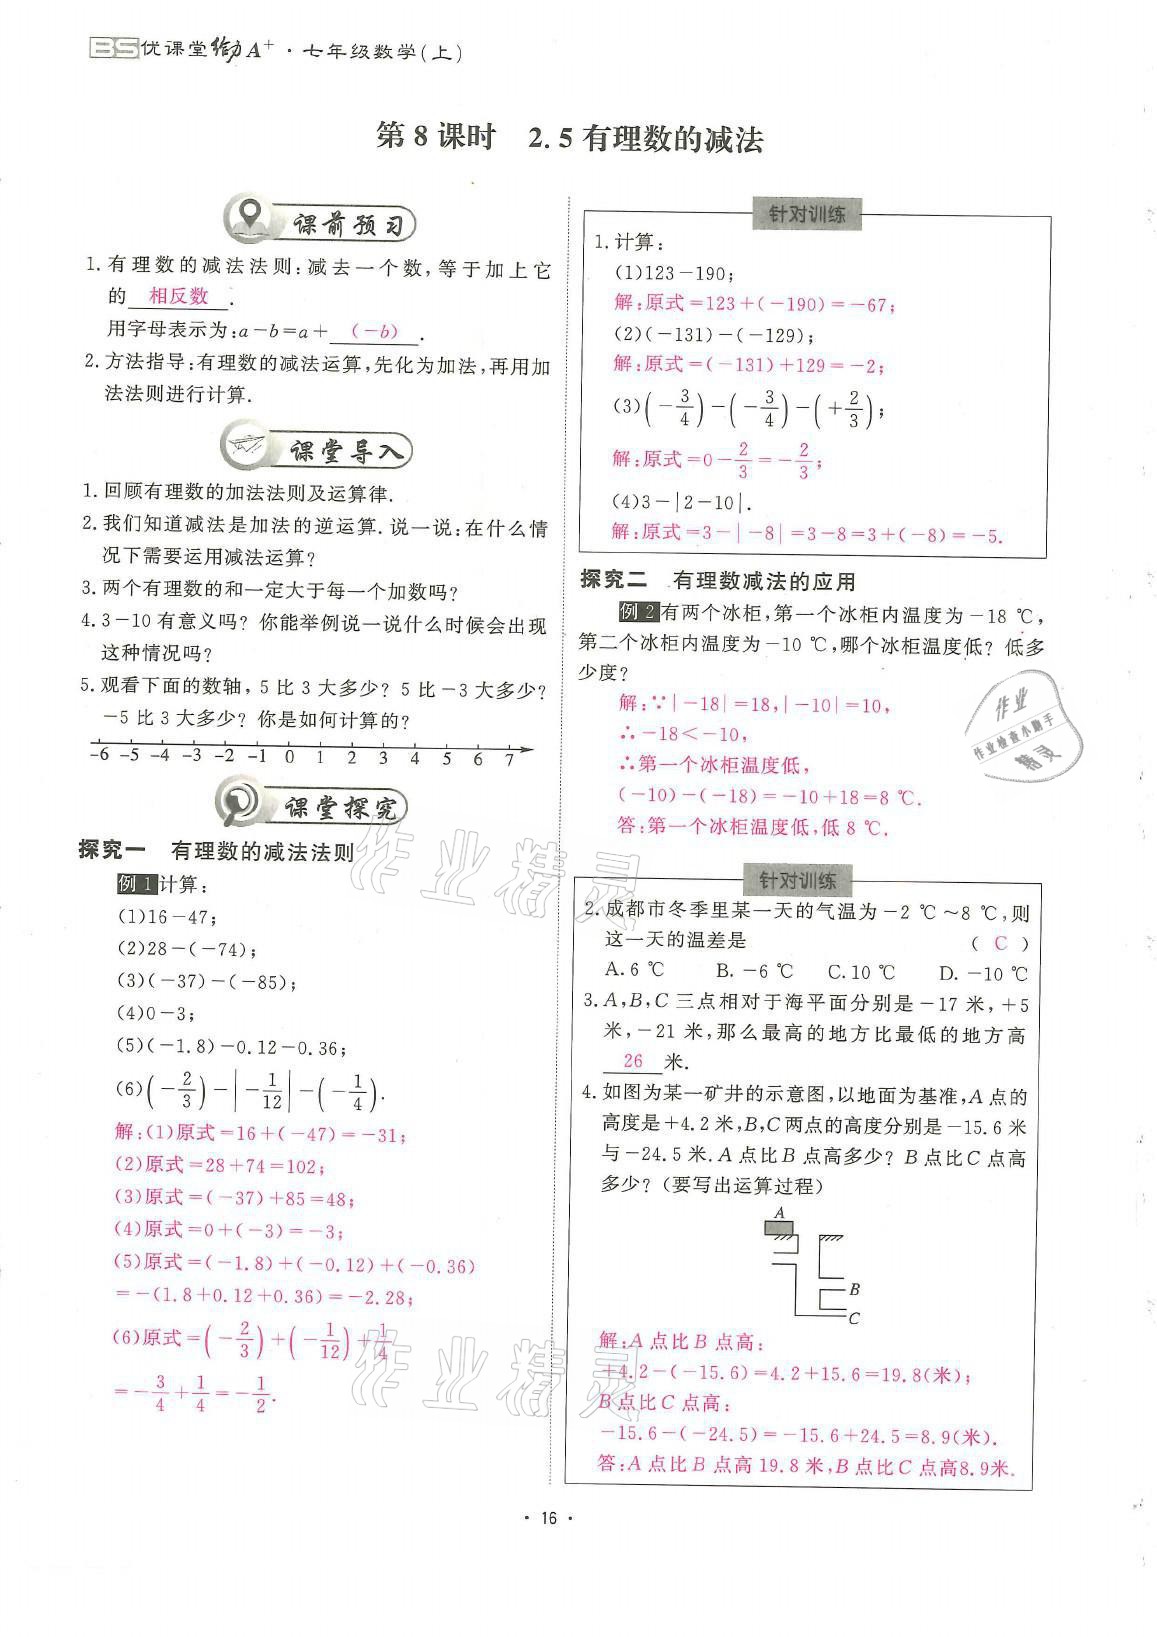 BS优课堂给力A⁺·七年级数学(上)
第8课时 2.5有理数的减法
课前预习
1.有理数的减法法则:减去一个数,等于加上它
的 相反数 .
用字母表示为:a-b=a+ (-b) .
2.方法指导:有理数的减法运算,先化为加法,再用加
法法则进行计算.
课堂导入
1.回顾有理数的加法法则及运算律.
2.我们知道减法是加法的逆运算.说一说:在什么情
况下需要运用减法运算?
3.两个有理数的和一定大于每一个加数吗?
4.3-10有意义吗?你能举例说一说什么时候会出现
这种情况吗?
5.观看下面的数轴,5比3大多少?5比-3大多少?
-5比3大多少?你是如何计算的?
-6 -5 -4 -3 -2 -1 0 1 2 3 4 5 6 7
课堂探究
探究一 有理数的减法法则
例1计算:
(1)16-47;
(2)28-(-74);
(3)(-37)-(-85);
(4)0-3;
(5)(-1.8)-0.12-0.36;
(6)(-2/3)-|-1/12|-(-1/4).
解:(1)原式=16+(-47)=-31;
(2)原式=28+74=102;
(3)原式=(-37)+85=48;
(4)原式=0+(-3)=-3;
(5)原式=(-1.8)+(-0.12)+(-0.36)
=-(1.8+0.12+0.36)=-2.28;
(6)原式=(-2/3)+(-1/12)+1/4
=-3/4+1/4=-1/2.
针对训练
1.计算:
(1)123-190;
解:原式=123+(-190)=-67;
(2)(-131)-(-129);
解:原式=(-131)+129=-2;
(3)(-3/4)-(-3/4)-(+2/3);
解:原式=0-2/3=-2/3;
(4)3-|2-10|.
解:原式=3-|-8|=3-8=3+(-8)=-5.
探究二 有理数减法的应用
例2有两个冰柜,第一个冰柜内温度为-18 ℃,
第二个冰柜内温度为-10 ℃,哪个冰柜温度低?低多
少度?
解:∵|-18|=18,|-10|=10,
∴-18<-10,
∴第一个冰柜温度低,
(-10)-(-18)=-10+18=8 ℃.
答:第一个冰柜温度低,低8 ℃.
作业
作业检查小助手
精灵
针对训练
2.成都市冬季里某一天的气温为-2 ℃~8 ℃,则
这一天的温差是 ( C )
A.6 ℃ B.-6 ℃ C.10 ℃ D.-10 ℃
3.A,B,C三点相对于海平面分别是-17米,+5
米,-21米,那么最高的地方比最低的地方高
26 米.
4.如图为某一矿井的示意图,以地面为基准,A点的
高度是+4.2米,B,C两点的高度分别是-15.6米
与-24.5米.A点比B点高多少?B点比C点高
多少?(要写出运算过程)
A
B
C
解:A点比B点高:
+4.2-(-15.6)=4.2+15.6=19.8(米);
B点比C点高:
-15.6-(-24.5)=-15.6+24.5=8.9(米).
答:A点比B点高19.8米,B点比C点高8.9米.
作业精灵
作业精灵
·16·